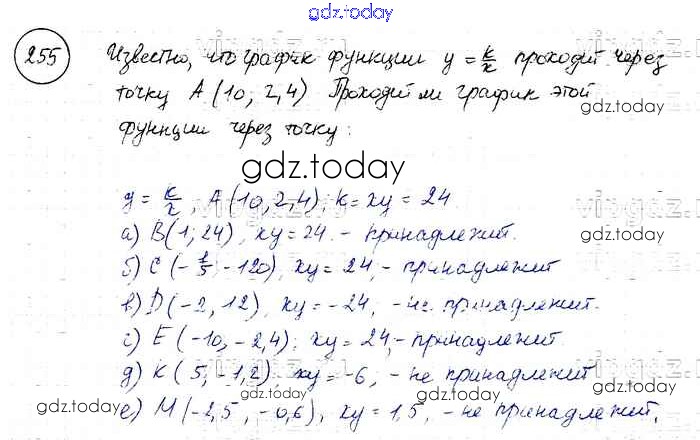 gdz.today
255 Известно, что график функции y = k/x проходит через
точку A(10; 2,4) Проходит ли график этой
функции через точку:
gdz.today
gdz.today
gdz.today
y = k/x, A(10, 2,4); k = xy = 24.
а) B(1; 24), xy = 24 - принадлежит.
б) C(-1/5; -120), xy = 24 - принадлежит
в) D(-2, 12), xy = -24, - не принадлежит.
г) E(-10, -2,4); xy = 24, - принадлежит
д) K(5, -1,2), xy = -6, - не принадлежит
е) M(-2,5, -0,6), xy = 1,5, - не принадлежит.
gdz.today
gdz.today
gdz.today